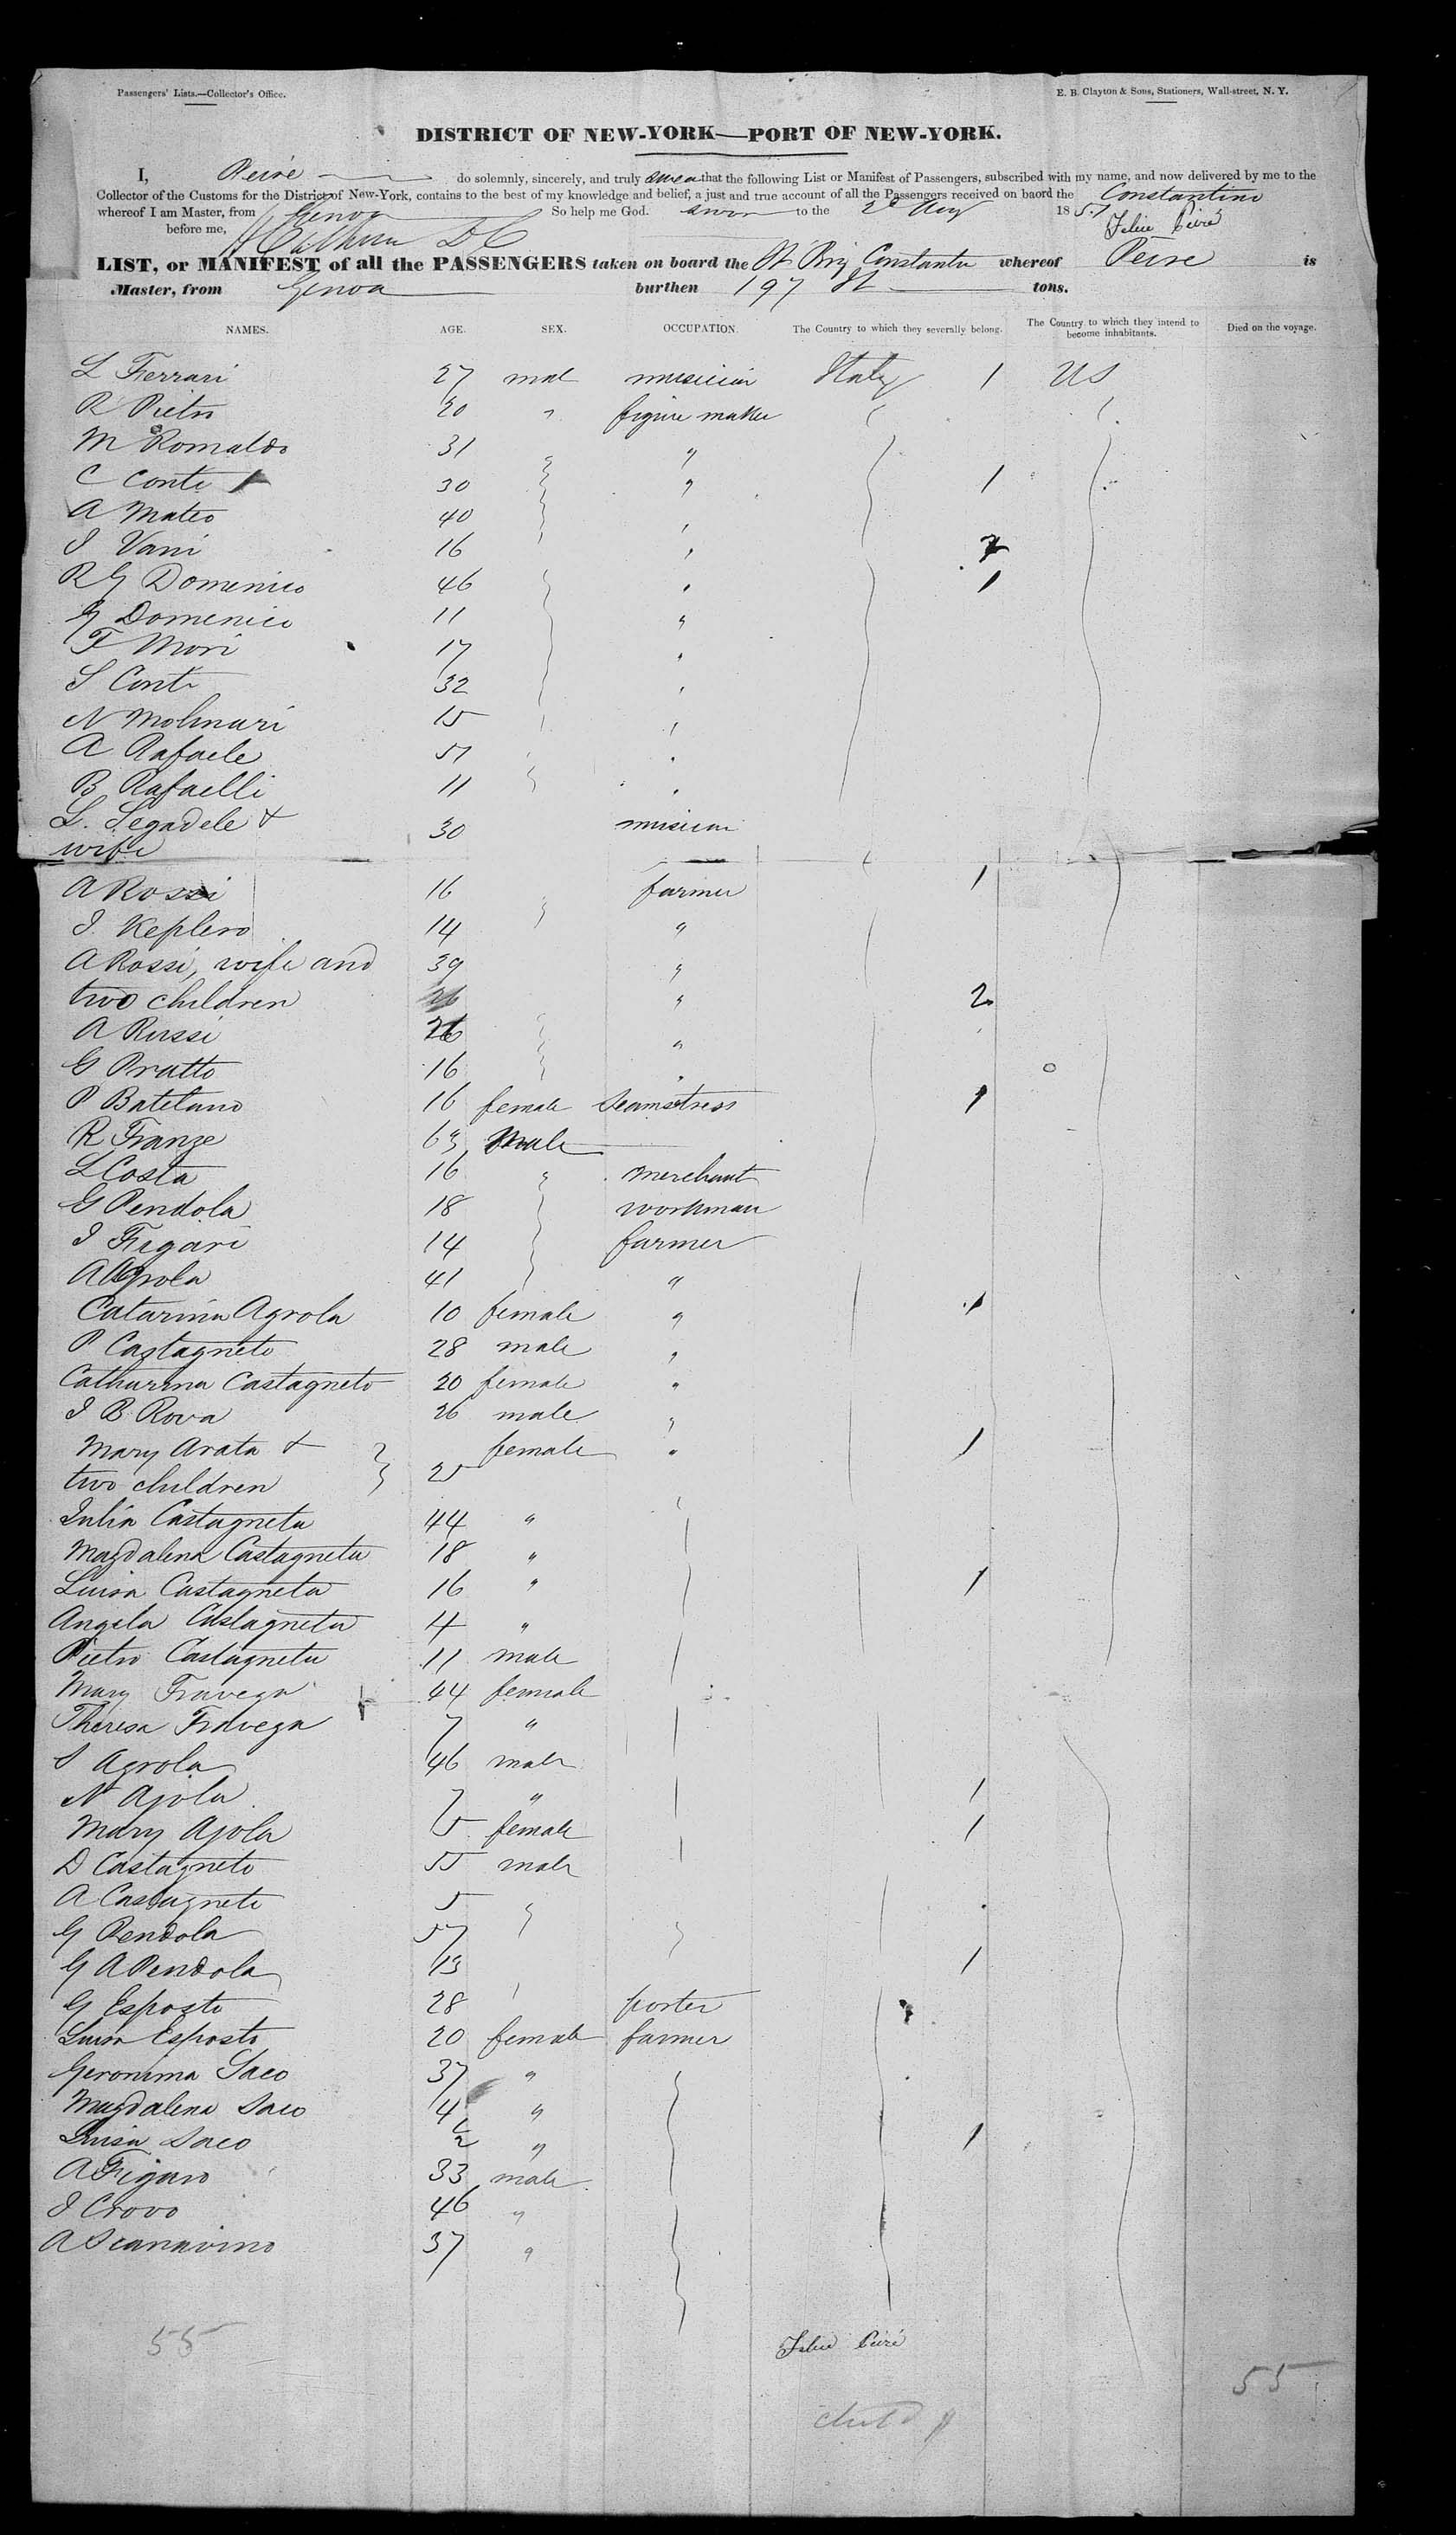 Passengers' Lists.—Collector's Office.
E. B. Clayton & Sons, Stationers, Wall-street, N. Y.
DISTRICT OF NEW-YORK—PORT OF NEW-YORK.
I, Peire do solemnly, sincerely, and truly swear that the following List or Manifest of Passengers, subscribed with my name, and now delivered by me to the
Collector of the Customs for the District of New-York, contains to the best of my knowledge and belief, a just and true account of all the Passengers received on baord the Constantino
whereof I am Master, from Genoa So help me God. sworn to the 2d Aug 1857
before me,
LIST, or MANIFEST of all the PASSENGERS taken on board the Brig whereof Peire is
Master, from Genoa burthen 197 tons.
NAMES. AGE. SEX. OCCUPATION. The Country to which they severally belong. The Country to which they intend to become inhabitants. Died on the voyage.
L Ferrari 27 mal musician Italy 1 US
R Pietro 20 " figure maker
M Romaldo 31 "
C Conti 30 " 1
A Mateo 40
I Vani 16
R G Domenico 46 1
G Domenico 11 "
F Mori 17
S Conti 32
N Molinari 15
A Rafaele 51
B Rafaelli 11
L. Segadele & 30 musician
wife
A Rossi 16 farmer 1
I. Keplero 14 "
A Rossi, wife and 39 "
two children " 2
A Russi 26 "
G Pratto 16
P Batelano 16 female Seamstress 1
R Franze 63 Male
L Costa 16 " merchant
G Pendola 18 workman
I Figari 14 farmer
A Agrola 41 "
Catarina Agrola 10 female " 1
P Castagneto 28 male "
Catharina Castagneto 20 female "
I B Rova 26 male "
Mary Arata & female " 1
two children 25
Julia Castagneta 44 "
Magdalena Castagneta 18 "
Luisa Castagneta 16 " 1
Angela Castagneta 4 "
Pietro Castagneta 11 male
Mary Fravega 44 female
Theresa Fravega 7 "
S Agrola 46 male
N Ajola 7 " 1
Mary Ajola 5 female 1
D Castagneto 55 male
A Castagneto 5
G Pendola 57
G A Pendola 13 1
G Esposto 28 porter
Luisa Esposto 20 female farmer
Geronima Saco 37 "
Magdalena Saco 4 "
Luisa Saco 1/2 " 1
A Figaro 33 male
I Crovo 46 "
A Scanavino 37 "
55
55